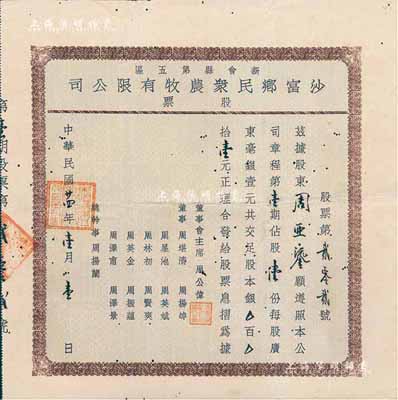 新會縣第五區
沙富鄉民衆農牧有限公司
股票
股票第貳零貳號
茲據股東周亜鎏願遵照本公
司章程第壹期佔股壹份每股廣
東毫銀壹元共交足股本銀百
拾壹元正連合發給股票息摺為據
董事會主席 周公偉
董事 周堪濤 周揚
周星池 周英斌
周林初 周賢爽
周英金 周振蘊
周澤甫 周澤景
總幹事 周揚蘭
中華民國廿四年壹月壹日